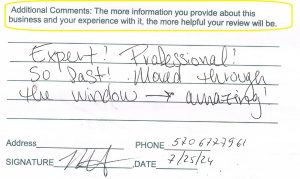 Additional Comments: The more information you provide about this
business and your experience with it, the more helpful your review will be.
Expert! Professional!
So fast! Moved through
the window → amazing!
Address PHONE 5706727961
SIGNATURE DATE 7/25/24